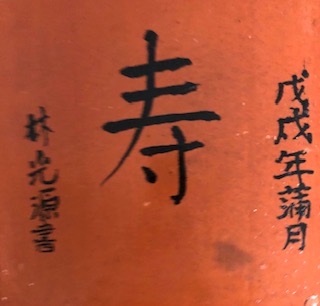 戊戌年蒲月
寿
林光源書